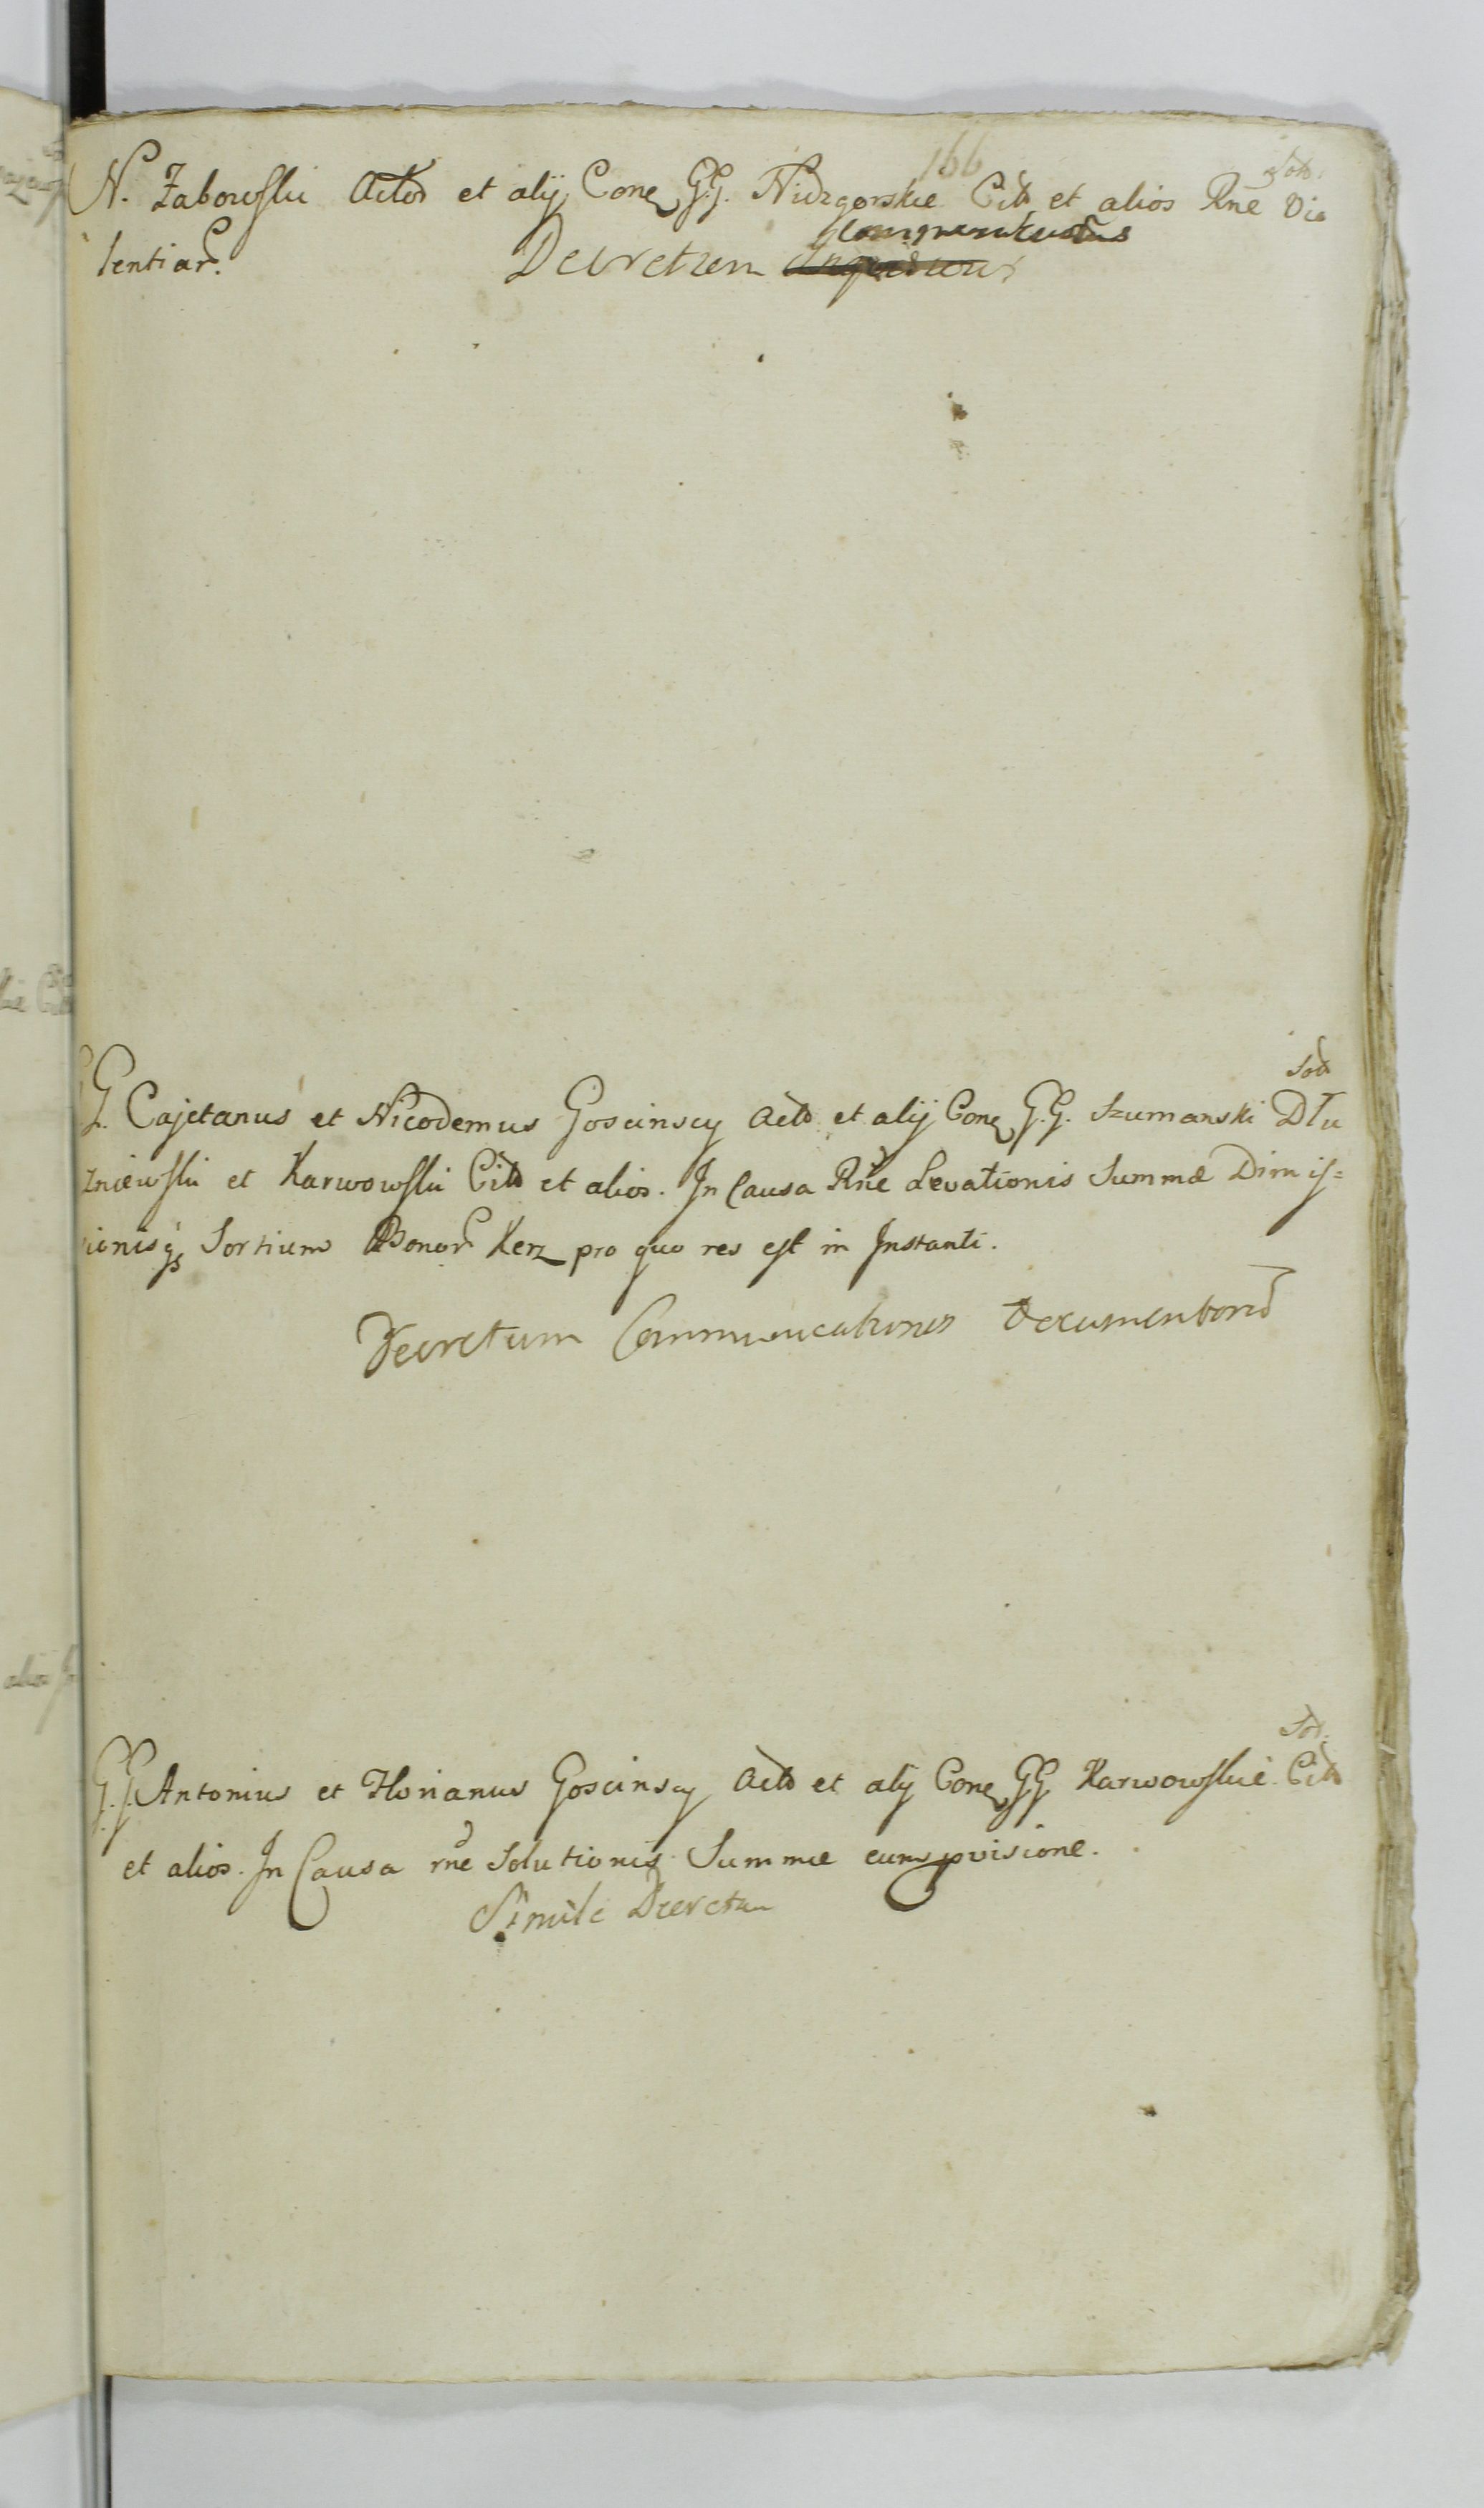 166
Sod
N. Zaborowski Actor et alij Conq G.G. Nidzgorskie Citt et alios Rne Vio
lentiar.
Decretum
Sod
G. Cajetanus et Nicodemus Goscinscy Acto et alij Conq G.G. Szumanski Dłu
zniewski et Karwowski Citt et alios. In Causa Rne Levationis Summæ Dimis=
sionisq Sortium Bonor Kerz pro quo res est in Instanti.
Decretum Communicationis Documentorum
Sod.
G.G. Antonius et Florianus Goscinscy Acto et alij Conq GG Karwowskie Citt
et alios. In Causa rne Solutionis Summæ cum pvisione.
Simile Decretum